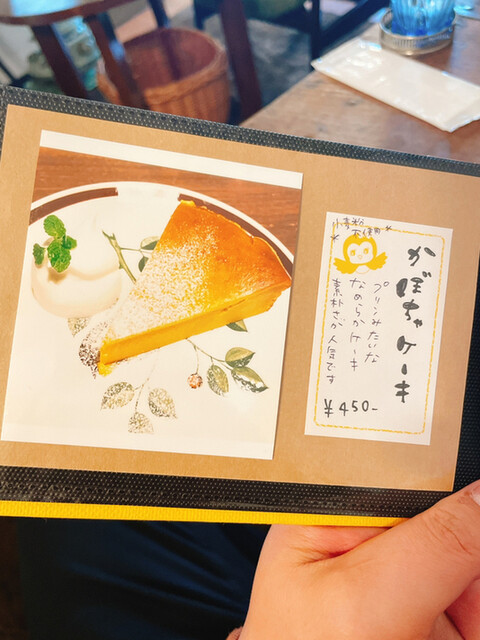 かぼちゃケーキ
小麦粉
不使用
プリンみたいな
なめらかケーキ
素朴さが人気です
¥450-